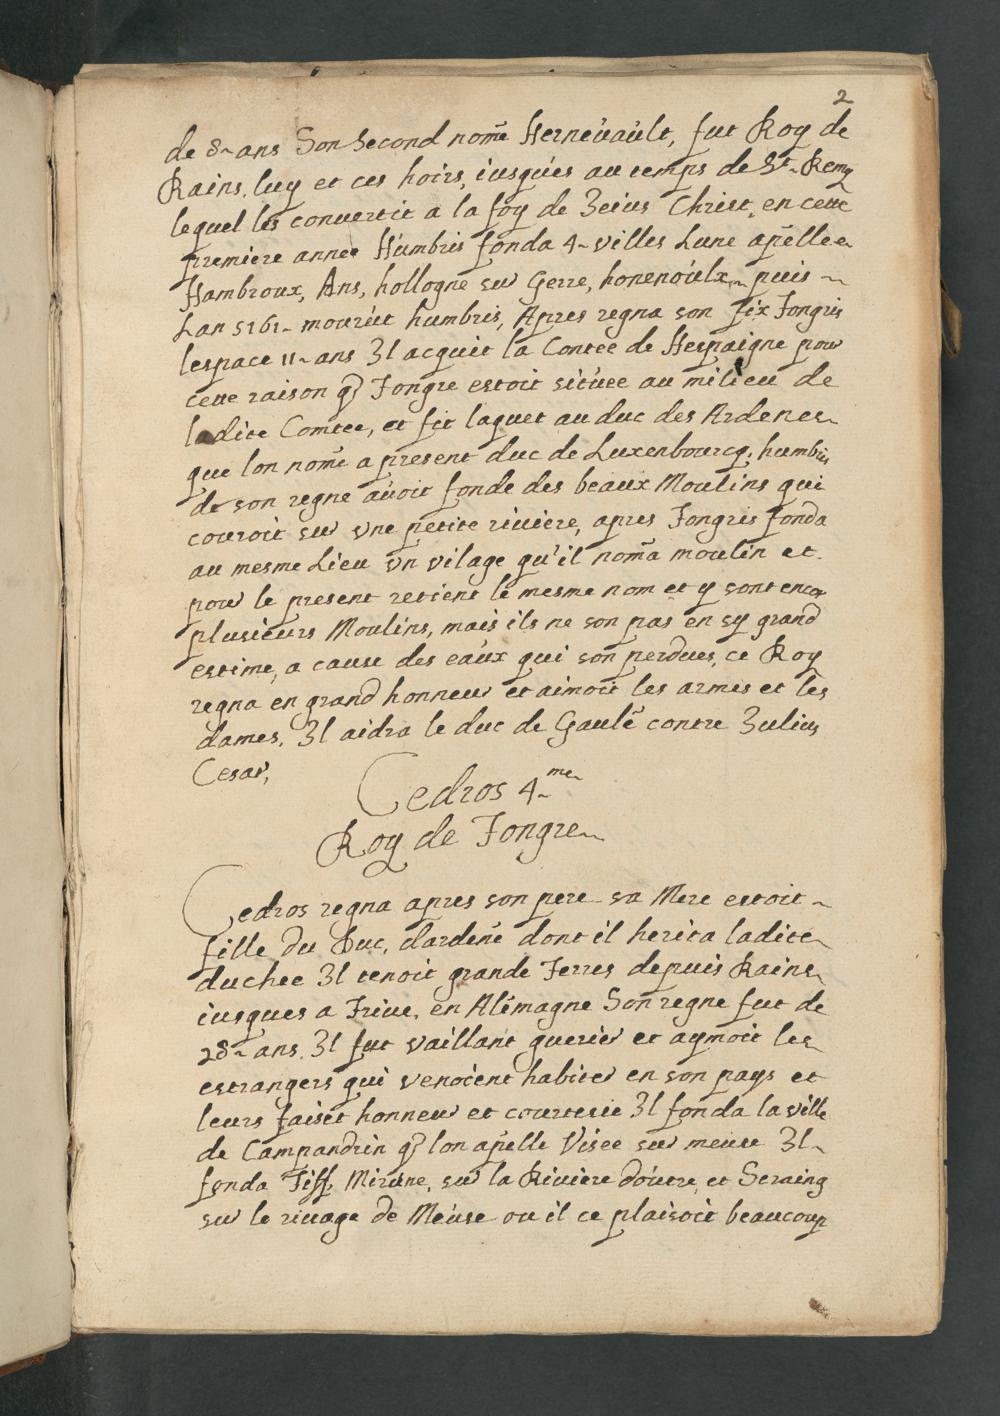 2
de 8~ ans Son Second nomē Hernevault, fut Roy de
Rains, luy et ces hoirs, iusques au temps de St. Remy
lequel les convertit a la foy de Jeius Christ, en cette
premiere annee Humbris fonda 4~ villes Lune apellee
Hambroux, Ans, hollogne sur Gerre, honenoulx~ puis ~
Lan 5161~ mourut humbris, Apres regna son fix Tongris
lespace 11~ ans Il acquit la Contee de Hespaigne pour
cette raison q̃ Tongre estoit situee au milieu de
ladite Comtee, et fit laquet au duc des Ardenes~
que lon nomē a present duc de Luxenbourcq, humbris
de son regne avoit fonde des beaux Moulins qui
couroit sur vne petite riviere, apres Tongris fonda
au mesme Lieu vn vilage qu'il nomā moulin et
pour le present retient le mesme nom et y sont encor
plusieurs Moulins, mais ils ne son pas en sy grand
estime, a cause des eaux qui son perdues, ce Roy
regna en grand honneur et aimoit les armes et les
dames, Il aidra le duc de Gaulē contre Julius
Cesar,
Cedros 4~me
Roy de Tongre~
Cedros regna apres son pere~ sa Mere estoit ~
fille du Duc, dardenē dont il herita ladite~
duchee Il tenoit grande Terres depuis Rains~
iusques a Trive, en Alemagne Son regne fut de
28~ ans. Il fut vaillant guerier et aymoit les
estrangers qui venoient habiter en son pays et
leurs faiset honneur et courtesie Il fonda la ville
de Campandrin q̃ lon apelle Visee sur meuse Il~
fonda Tiff, Mirune, sur la Riviere doutre, et Seraing
sur le rivage de Meuse ou il ce plaisoit beaucoup